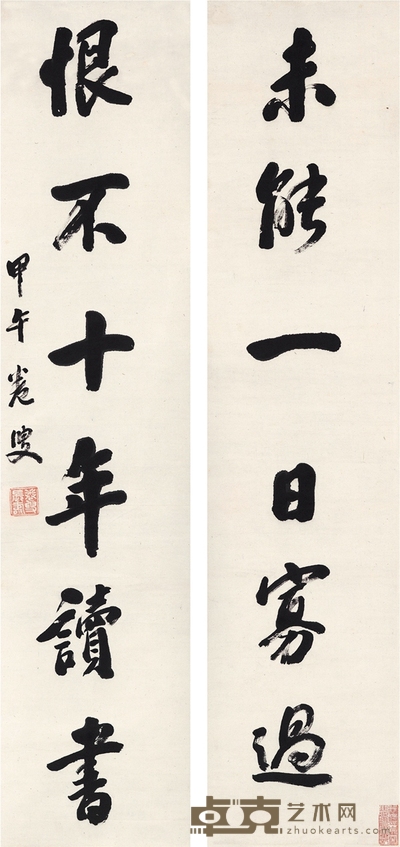 未能一日寡過
恨不十年讀書
甲午 卷叟
卓克艺术网
zhuokearts.com